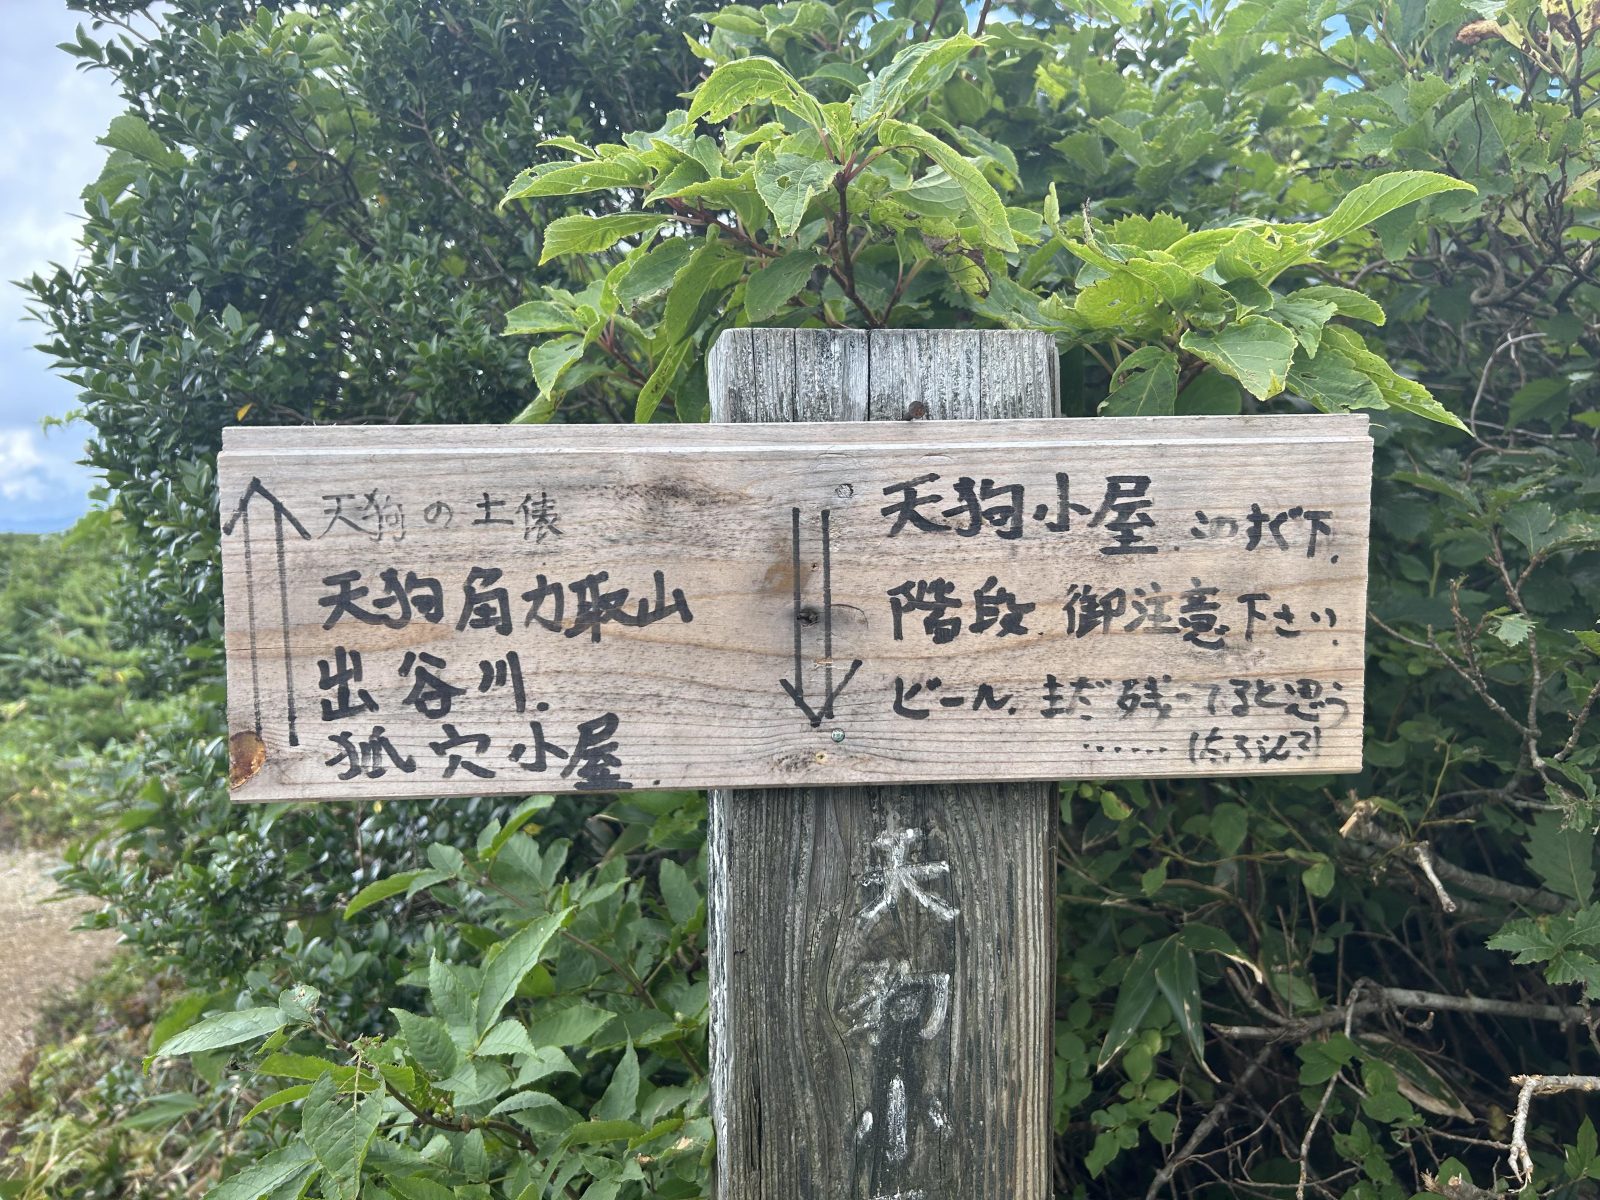 天狗の土俵
天狗角力取山
出谷川.
狐穴小屋.
天狗小屋.このすぐ下.
階段 御注意下さい.
ビール.まだ残ってると思う
.......
天狗小